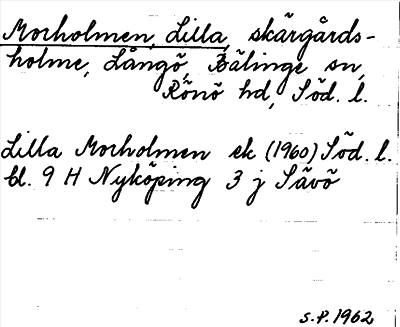 Morholmen, Lilla, skärgårds-
holme, Långö, Bälinge sn,
Rönö hd, Söd. l.
Lilla Morholmen ek (1960) Söd. l.
bl. 9 H Nyköping 3 j Sävö
S.P. 1962